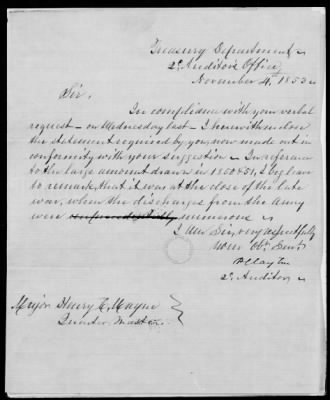 Treasury Department
2d Auditor's Office
November 4, 1853
Sir,
In compliance with your verbal
request - on Wednesday last - I herewith enclose
the statement required by you, now made out in
conformity with your suggestion - In reference
to the large amount drawn in 1850 & 51, I beg leave
to remark, that it was at the close of the late
war, when the discharges from the Army
were numerous
I am Sir, very respectfully
Your Obt. Servt.
P. Clayton
2d Auditor
Major Henry C. Wayne
Quarter Master